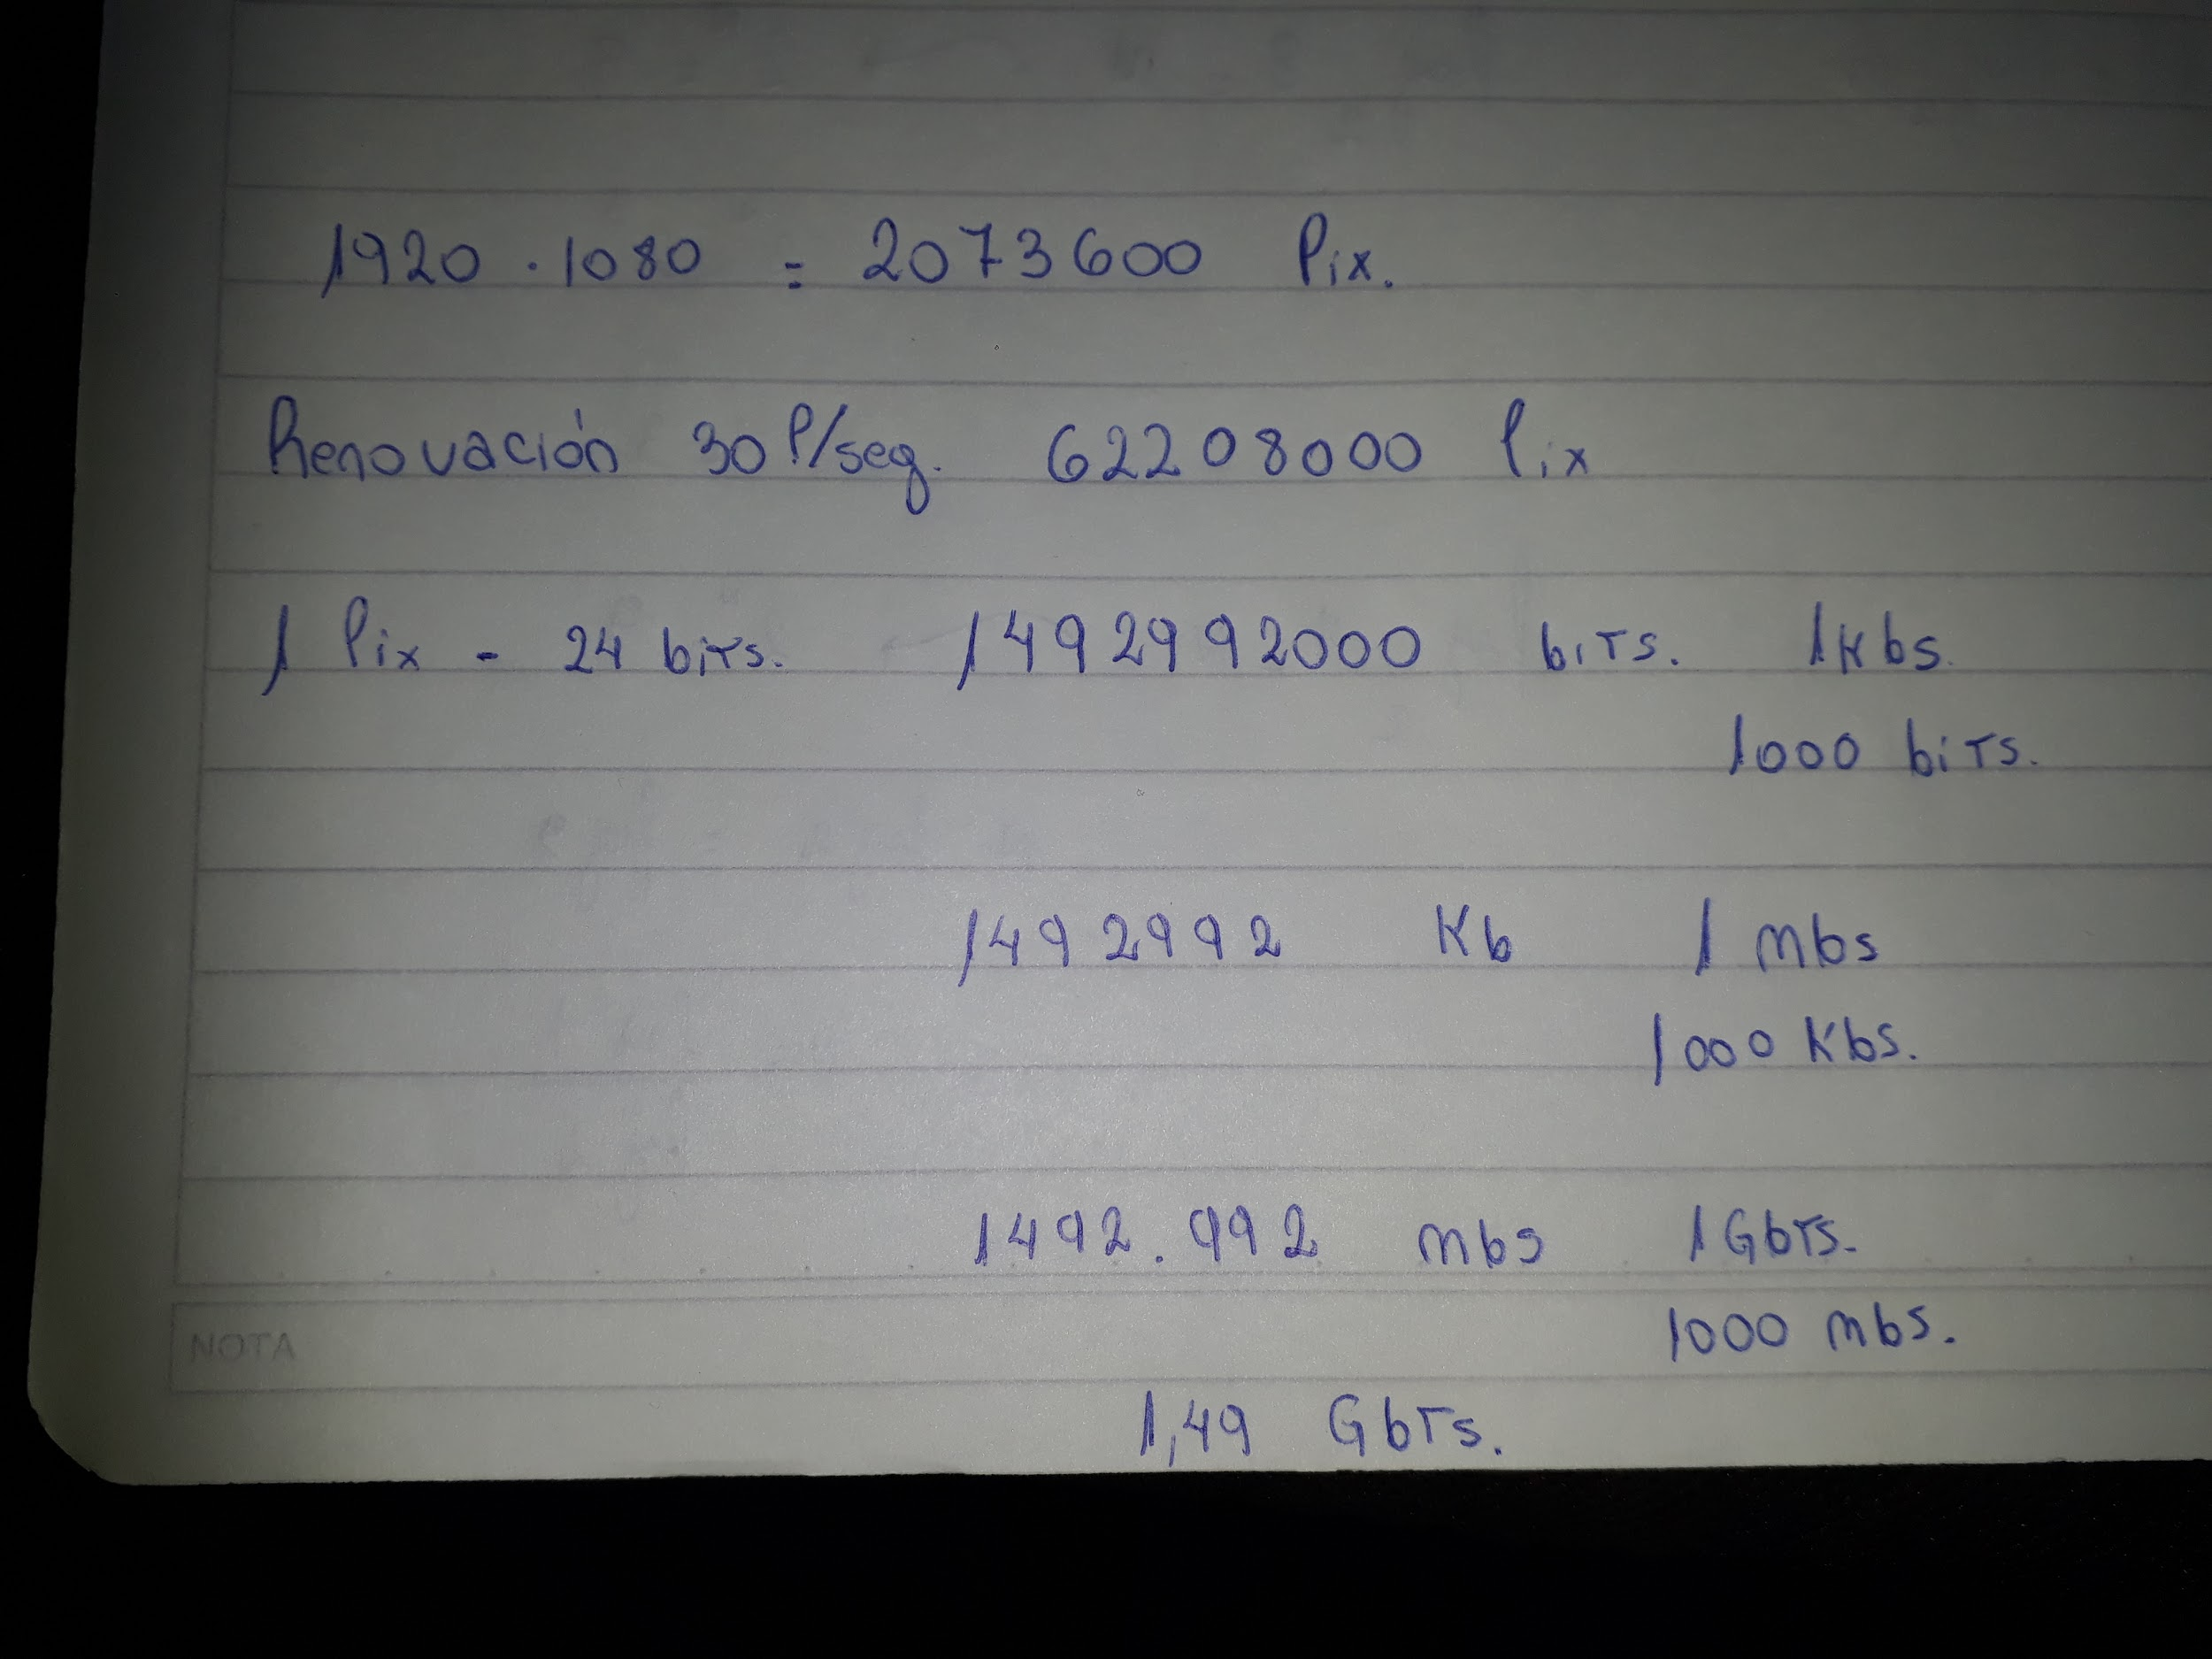 1920 . 1080 = 2073600 Pix.
Renovación 30 P/seg. 62208000 Pix
1 Pix - 24 bits. 1492992000 bits. 1 Kbs.
1000 bits.
1492992 Kb 1 mbs
1000 Kbs.
1492.992 mbs 1 Gbts.
NOTA 1000 mbs.
1,49 Gbts.